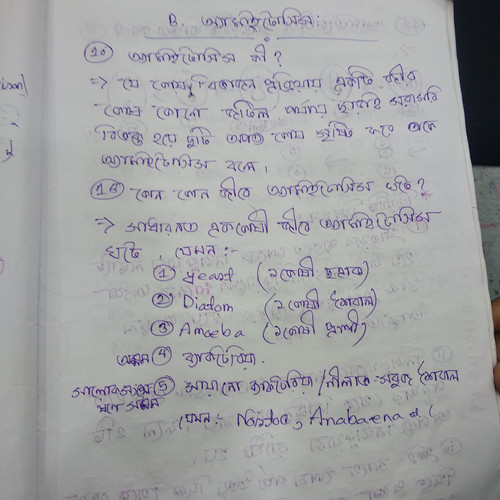 B. অ্যামাইটোসিস:
১০ অ্যামাইটোসিস কী?
⇒ যে কোষ বিভাজন প্রক্রিয়ায় একটি জীব
কোষ কোনো জটিল পর্যায় ছাড়াই সরাসরি
বিভক্ত হয়ে দুটি অপত্য কোষ সৃষ্টি করে তাকে
অ্যামাইটোসিস বলে।
কোন কোন জীবে অ্যামাইটোসিস ঘটে?
⇒ সাধারনত এককোষী জীবে অ্যামাইটোসিস
ঘটে, যেমন:-
① Yeast (১কোষী ছত্রাক)
② Diadom (১কোষী শৈবাল)
③ Amoeba (১কোষী প্রাণী)
④ ব্যাকটেরিয়া.
⑤ সায়ানো ব্যাকটেরিয়া / নীলাভ-সবুজ শৈবাল
যেমন: Nostoc, Anabaena